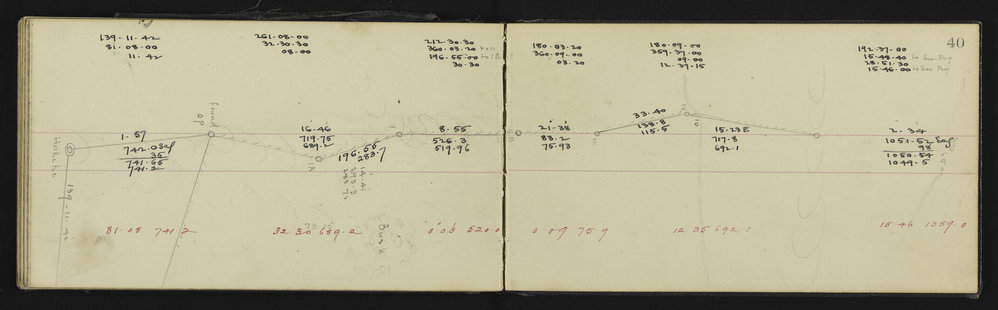 139-11-42
81-08-00
11-42
261-08-00
32-30-30
08-00
212-30-30
360-03-20 to 11
196-55-00
30-30
1-57
742.0 Sag
35
741.65
741.2
found
OP
16-46
719.75
689.2
196-55
283.7
14-41
8-55
526.3
519.96
139-11-42
Bush
81-08 741.2
32 30 689.2
0-03 520.0
40
180-03-20
360-09-00
03-20
180-09-00
359-37-00
09-00
12-37-15
192-37-00
15-48-40 to Sea Peg
28-51-30
15-46-00 to Sea Peg
21-38
83.2
75.93
33.40
138.8
115.5
15-23 E
717.8
692.1
2-34
1051.52 Sag
98
1050.54
1049.5
0-09 75.9
12 35 692.1
15-46 1359.0